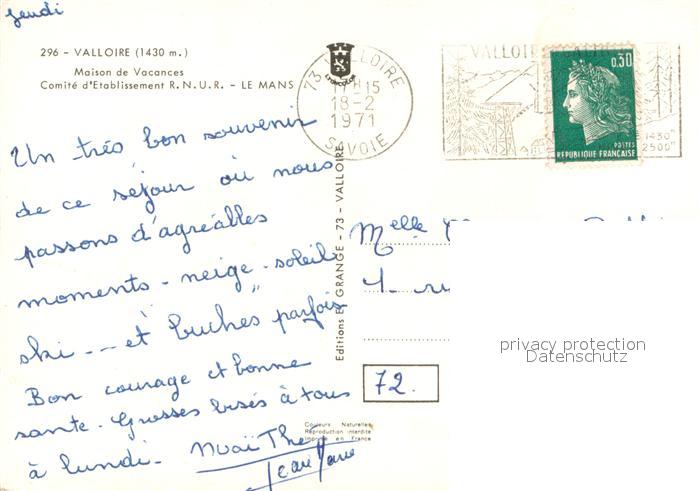 Jeudi
296 - VALLOIRE (1430 m.)
Maison de Vacances
Comité d'Etablissement R.N.U.R. - LE MANS
73 VALLOIRE
17H15
18-2
1971
SAVOIE
VALLOIRE
1430m
2500m
0,30
POSTES
REPUBLIQUE FRANÇAISE
Un très bon souvenir
de ce séjour où nous
passons d'agréables
moments - neige - soleil
ski --- et "buches" parfois
Bon courage et bonne
santé. Grosses bises à tous
à lundi.
Jean
Editions E. GRANGE - 73 - VALLOIRE
Melle
72.
Couleurs Naturelles
Reproduction interdite
Imprimé en France
privacy protection
Datenschutz